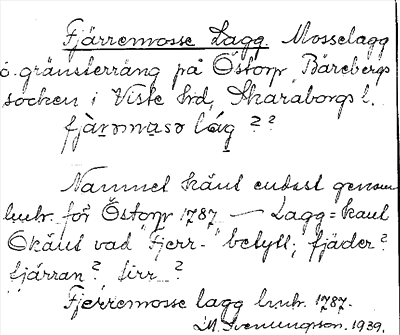 Fjärremosse Lagg. Mosselagg
o. gränsterräng på Östorp, Bärebergs
socken i Viste hrd, Skaraborgs l.
fjä̀rəmɷsə lág ? ?
Namnet känt endast genom
lmhr. för Östorp 1787 — Lagg = kant
Okänt vad "Fjerr-" betyll; fjäder?
fjärran?, firr_?
Fjerremosse lagg lmhr. 1787.
Svenungson. 1939.